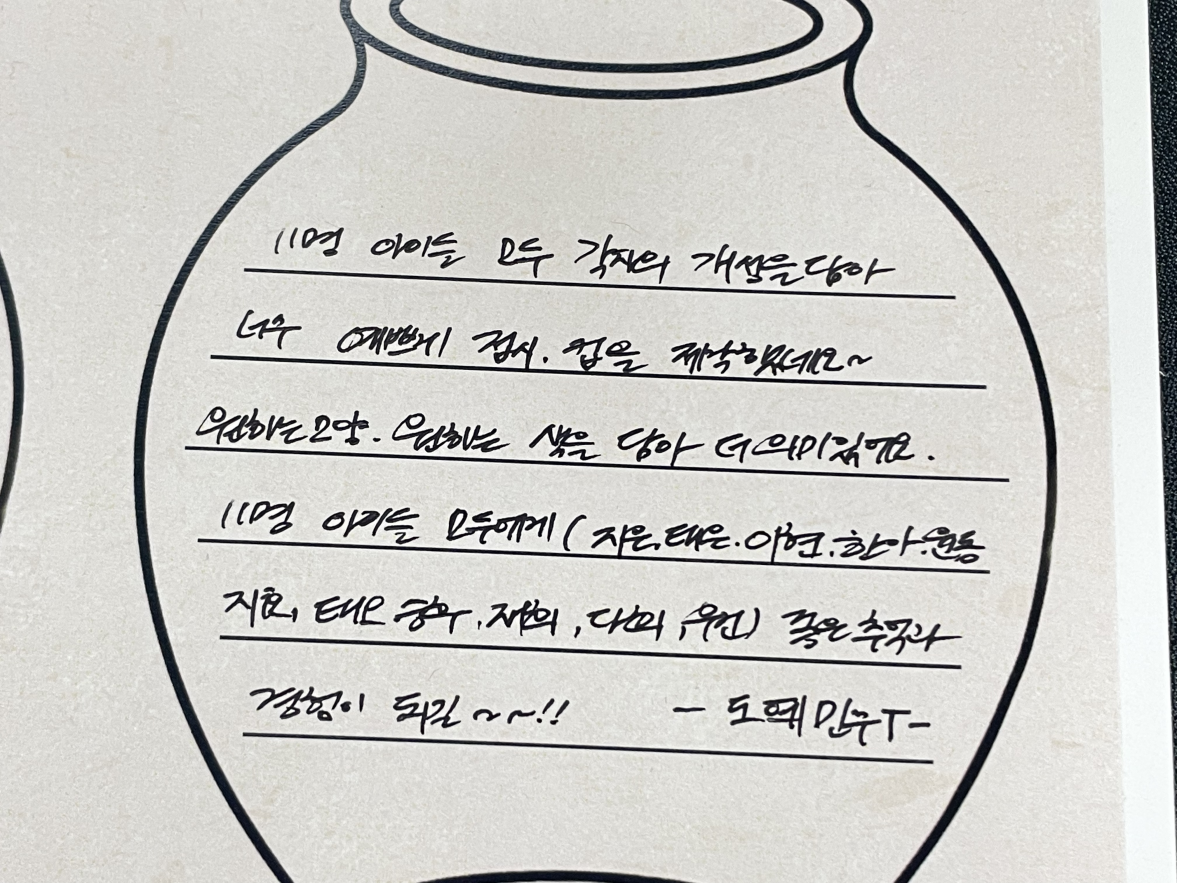 11명 아이들 모두 각자의 개성을 담아
너무 예쁘게 접시. 컵을 제작했네요~
원하는 모양. 원하는 색을 담아 더 의미있어요.
11명 아이들 모두에게 (지은.태은.이현.한아.윤동
지호, 태오 , , 다희, 우진) 좋은 추억과
경험이 되길~~!! - 도예 민주T-